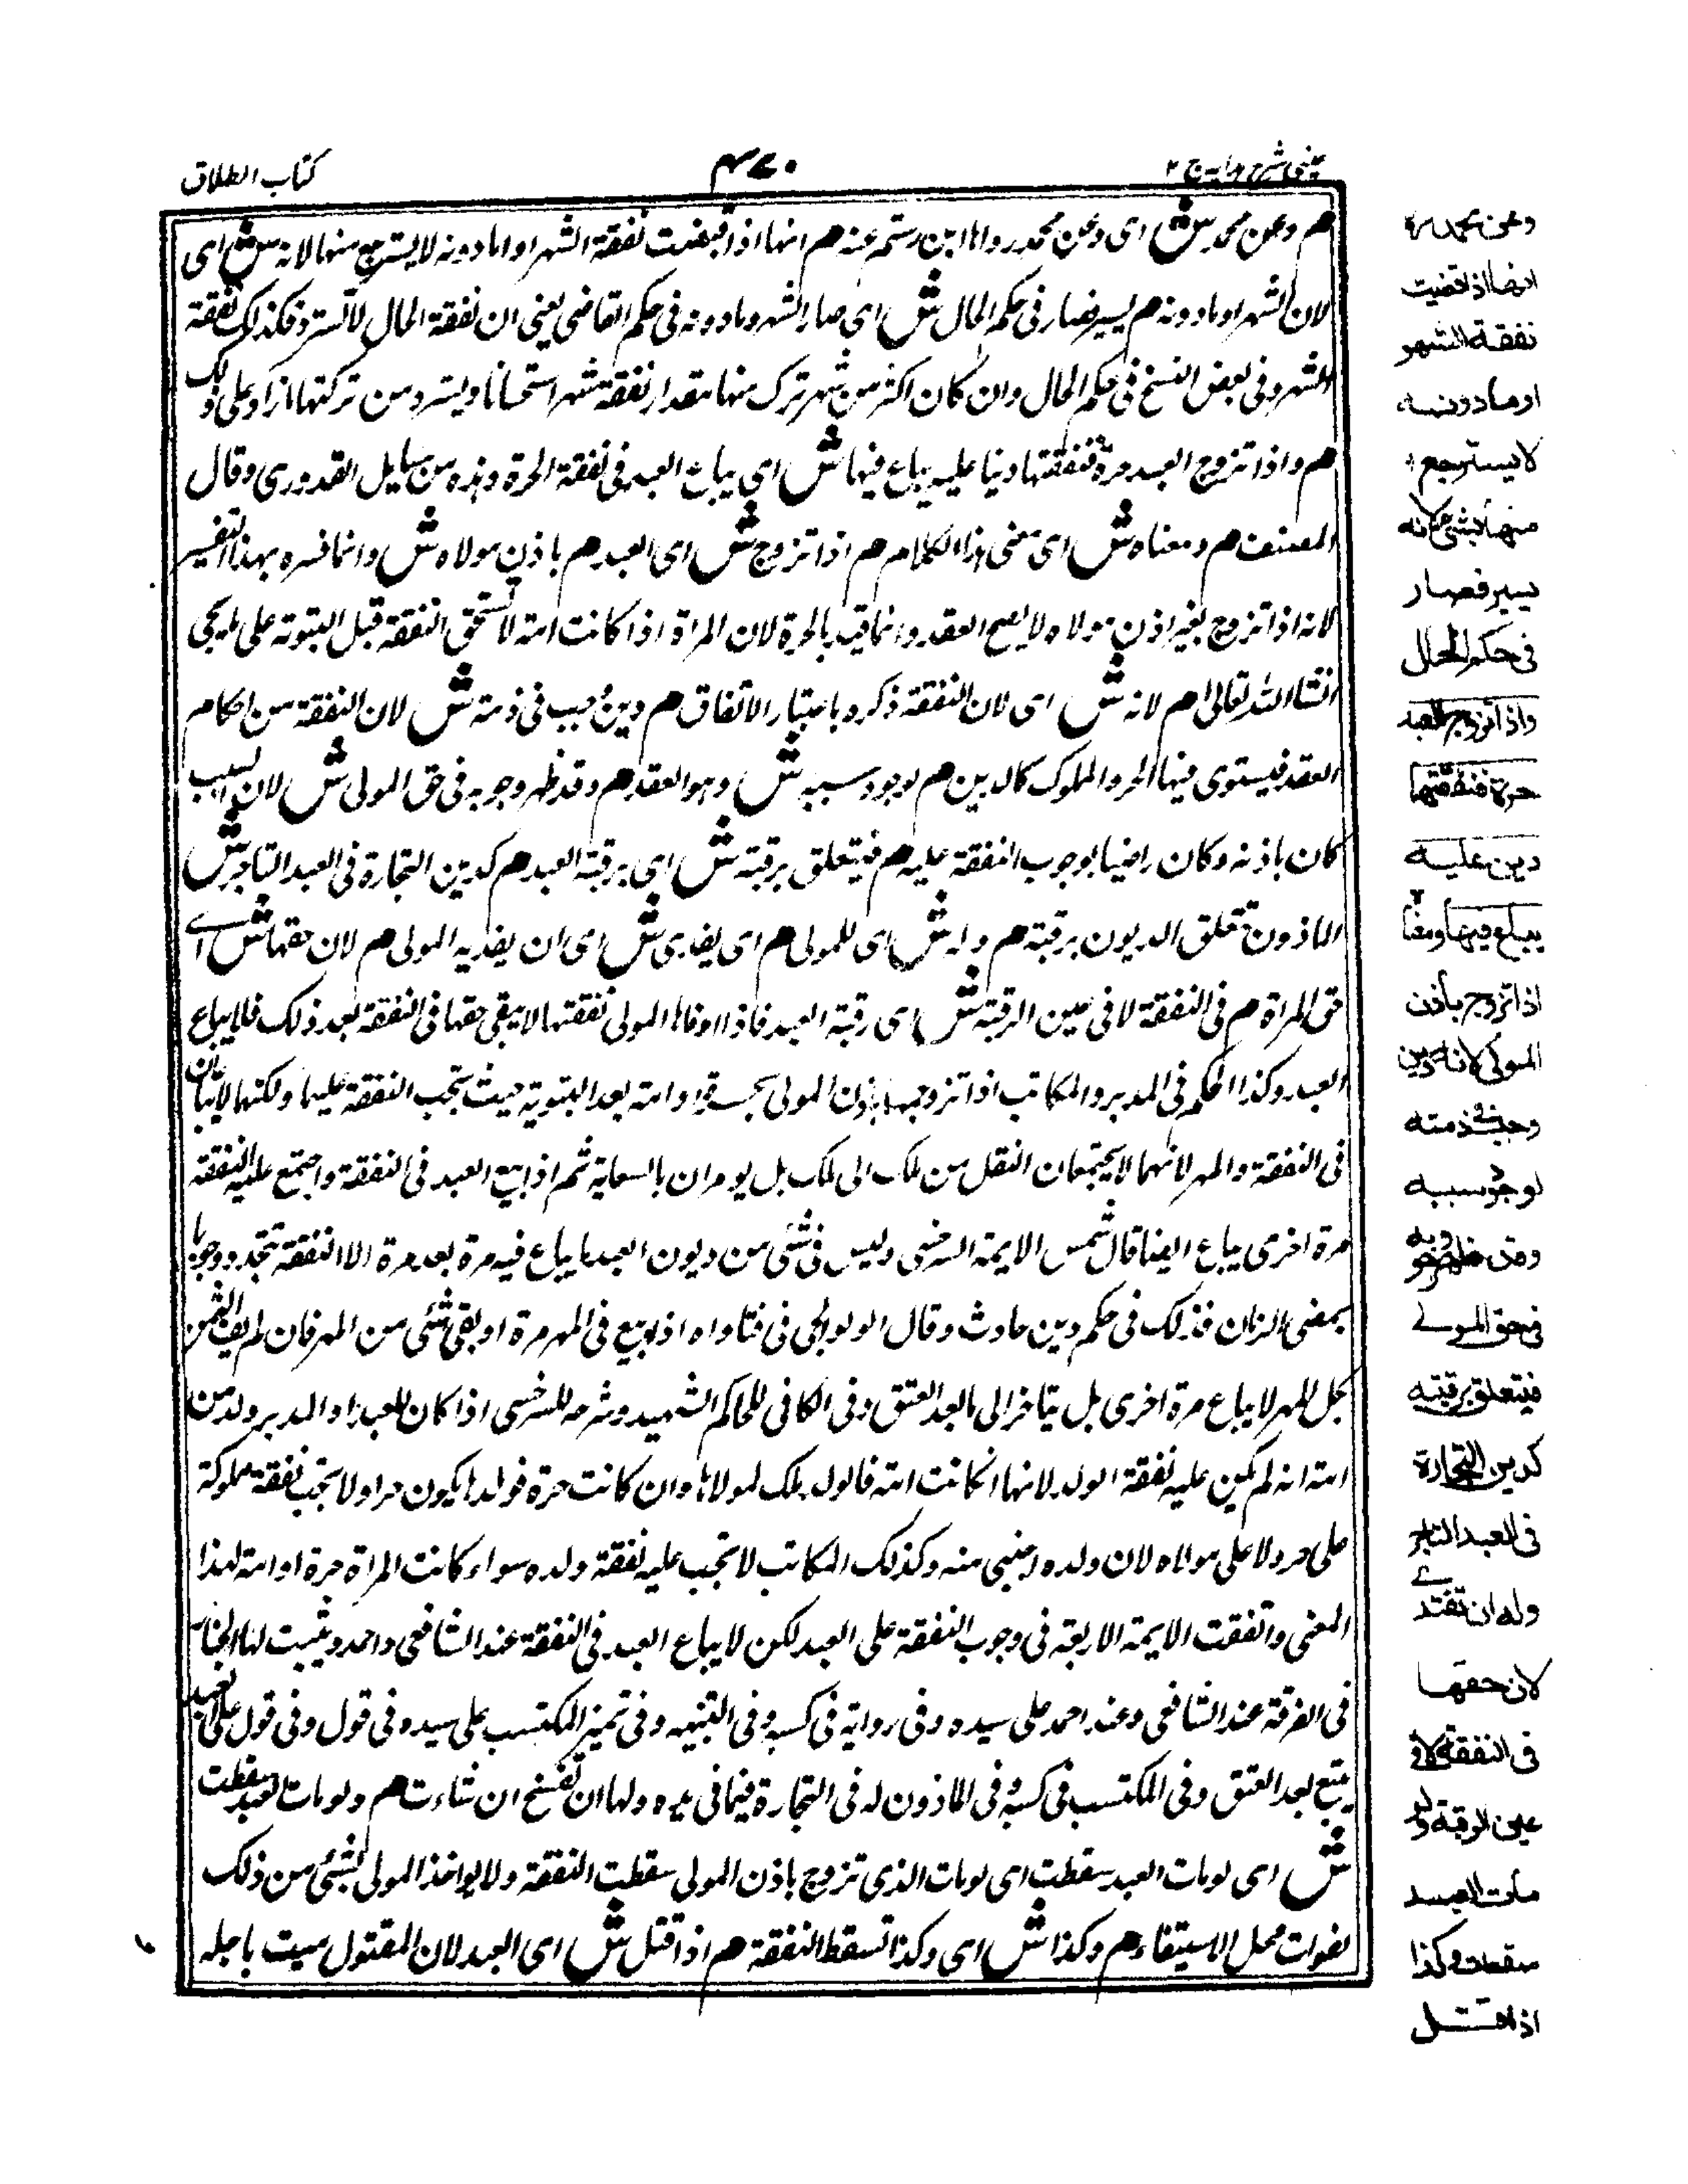 عينى شرح هدايه ج ٢
كتاب الطلاق
م وعن محمد ش اى وعن محمد رواها ابن رستم عنه م انها اذا قبضت نفقة الشهر او ما دونه لا يسترجع منها لانه ش اى
لان الشهر او ما دونه م يسير فصار فى حكم الحال ش اى صار الشهر وما دونه فى حكم القاضى يعنى ان نفقة الحال لا تسترد فكذلك نفقة
الشهر وفى بعض النسخ فى حكم الحال وان كان اكثر من شهر ترك منها مقدار نفقة شهر استحسانا ويسترد من تركتها ما زاد على ذلك
م واذا تزوج العبد حرة فنفقتها دينا عليه يباع فيها ش اى يباع العبد فى نفقة الحرة وهذه من مسايل القدورى وقال
المصنف م ومعناه ش اى معنى هذا الكلام م اذا تزوج ش اى العبد م باذن مولاه ش وانما فسره بهذا التفسير
لانه اذا تزوج بغير اذن مولاه لا يصح العقد وانما قيد بالحرة لان المراة اذا كانت امة لا تستحق النفقة قبل التبوئة على ما يجى
انشا الله تعالى م لانه ش اى لان النفقة ذكره باعتبار الاتفاق م دين وجب فى ذمته ش لان النفقة من احكام
العقد فيستوى فيها الحر والمملوك كالدين م لوجود سببه ش وهو العقد م وقد ظهر وجوبه فى حق المولى ش لان السبب
كان باذنه وكان راضيا بوجوب النفقة عليه م فيتعلق برقبته ش اى برقبة العبد م كدين التجارة فى العبد التاجر ش
الماذون تتعلق الديون برقبته م وله ش اى للمولى م اى يفدى ش اى ان يفديه المولى م لان حقها ش اے
حق المراة م فى النفقة لا فى عين الرقبة ش اى رقبة العبد فاذا اوفاها المولى نفقتها لا يبقى حقها فى النفقة بعد ذلك فلا يباع
العبد وكذا الحكم فى المدبر والمكاتب اذا تزوجها باذن المولى بحرة او امة بعد التبوية حيث تجب النفقة عليهما ولكنهما لا يباعان
فى النفقة والمهر لانهما لا يحتملان النقل من ملك الى ملك بل يومران بالسعاية ثم اذا بيع العبد فى النفقة واجتمع عليه النفقة
مرة اخرى يباع ايضا قال شمس الايمة السرخسى وليس فى شئى من ديون العبد ما يباع فيه مرة بعد مرة الا النفقة تتجدد وجوبها
بمضى الزمان فذلك فى حكم دين حادث وقال الولوالجى فى فتاواه اذا بيع فى المهر مرة او بقى شئى من المهر فان لم يف الثمن
بكل المهر لا يباع مرة اخرى بل يتاخر الى ما بعد العتق وفى الكافى للحاكم الشهيد وشرحه للسرخسى اذا كان للعبد او المدبر ولد من
امته انه لم يكن عليه نفقة الولد لانها ان كانت امة فالولد ملك لمولاها وان كانت حرة فولدها يكون حرا ولا تجب نفقة مملوكة
على حر ولا على مولاه لان ولده اجنبى منه وكذلك المكاتب لا تجب عليه نفقة ولده سواء كانت المراة حرة او امة لهذا
المعنى واتفقت الايمة الاربعة فى وجوب النفقة على العبد لكن لا يباع العبد فى النفقة عند الشافعى واحمد ويثبت لها الخيار
فى الفرقة عند الشافعى وعند احمد على سيده وفى رواية فى كسبه وفى التنبيه وفى تميز المكتسب على سيده وفى قول وفى قول على العبد
يتبع بعد العتق وفى المكتسب فى كسبه وفى الماذون له فى التجارة فيما فى يده ولها ان تفسخ ان شاءت م ولو مات العبد سقطت
ش اى لو مات العبد سقطت اى لو مات الذى تزوج باذن المولى سقطت النفقة ولا يواخذ المولى بشئى من ذلك
لفوات محل الاستيفاء م وكذا ش اى وكذا تسقط النفقة م اذا قتل ش اى العبد لان المقتول ميت باجله
وعن محمد رح
انها اذا قبضت
نفقة الشهر
او ما دونه
لا يسترجع
منها بشى لانه
يسير فصار
فى حكم الحال
واذا تزوج العبد
حرة فنفقتها
دين عليه
يباع فيها ومعناه
اذا تزوج باذن
المولى لانه دين
وجب فى ذمته
لوجود سببه
وقد ظهر وجوبه
فى حق المولے
فيتعلق برقبته
كدين التجارة
فى العبد التاجر
وله ان تفتدے
لان حقها
فى النفقة لا فى
عين الرقبة ولو
مات العبد
سقطت وكذا
اذا قتل